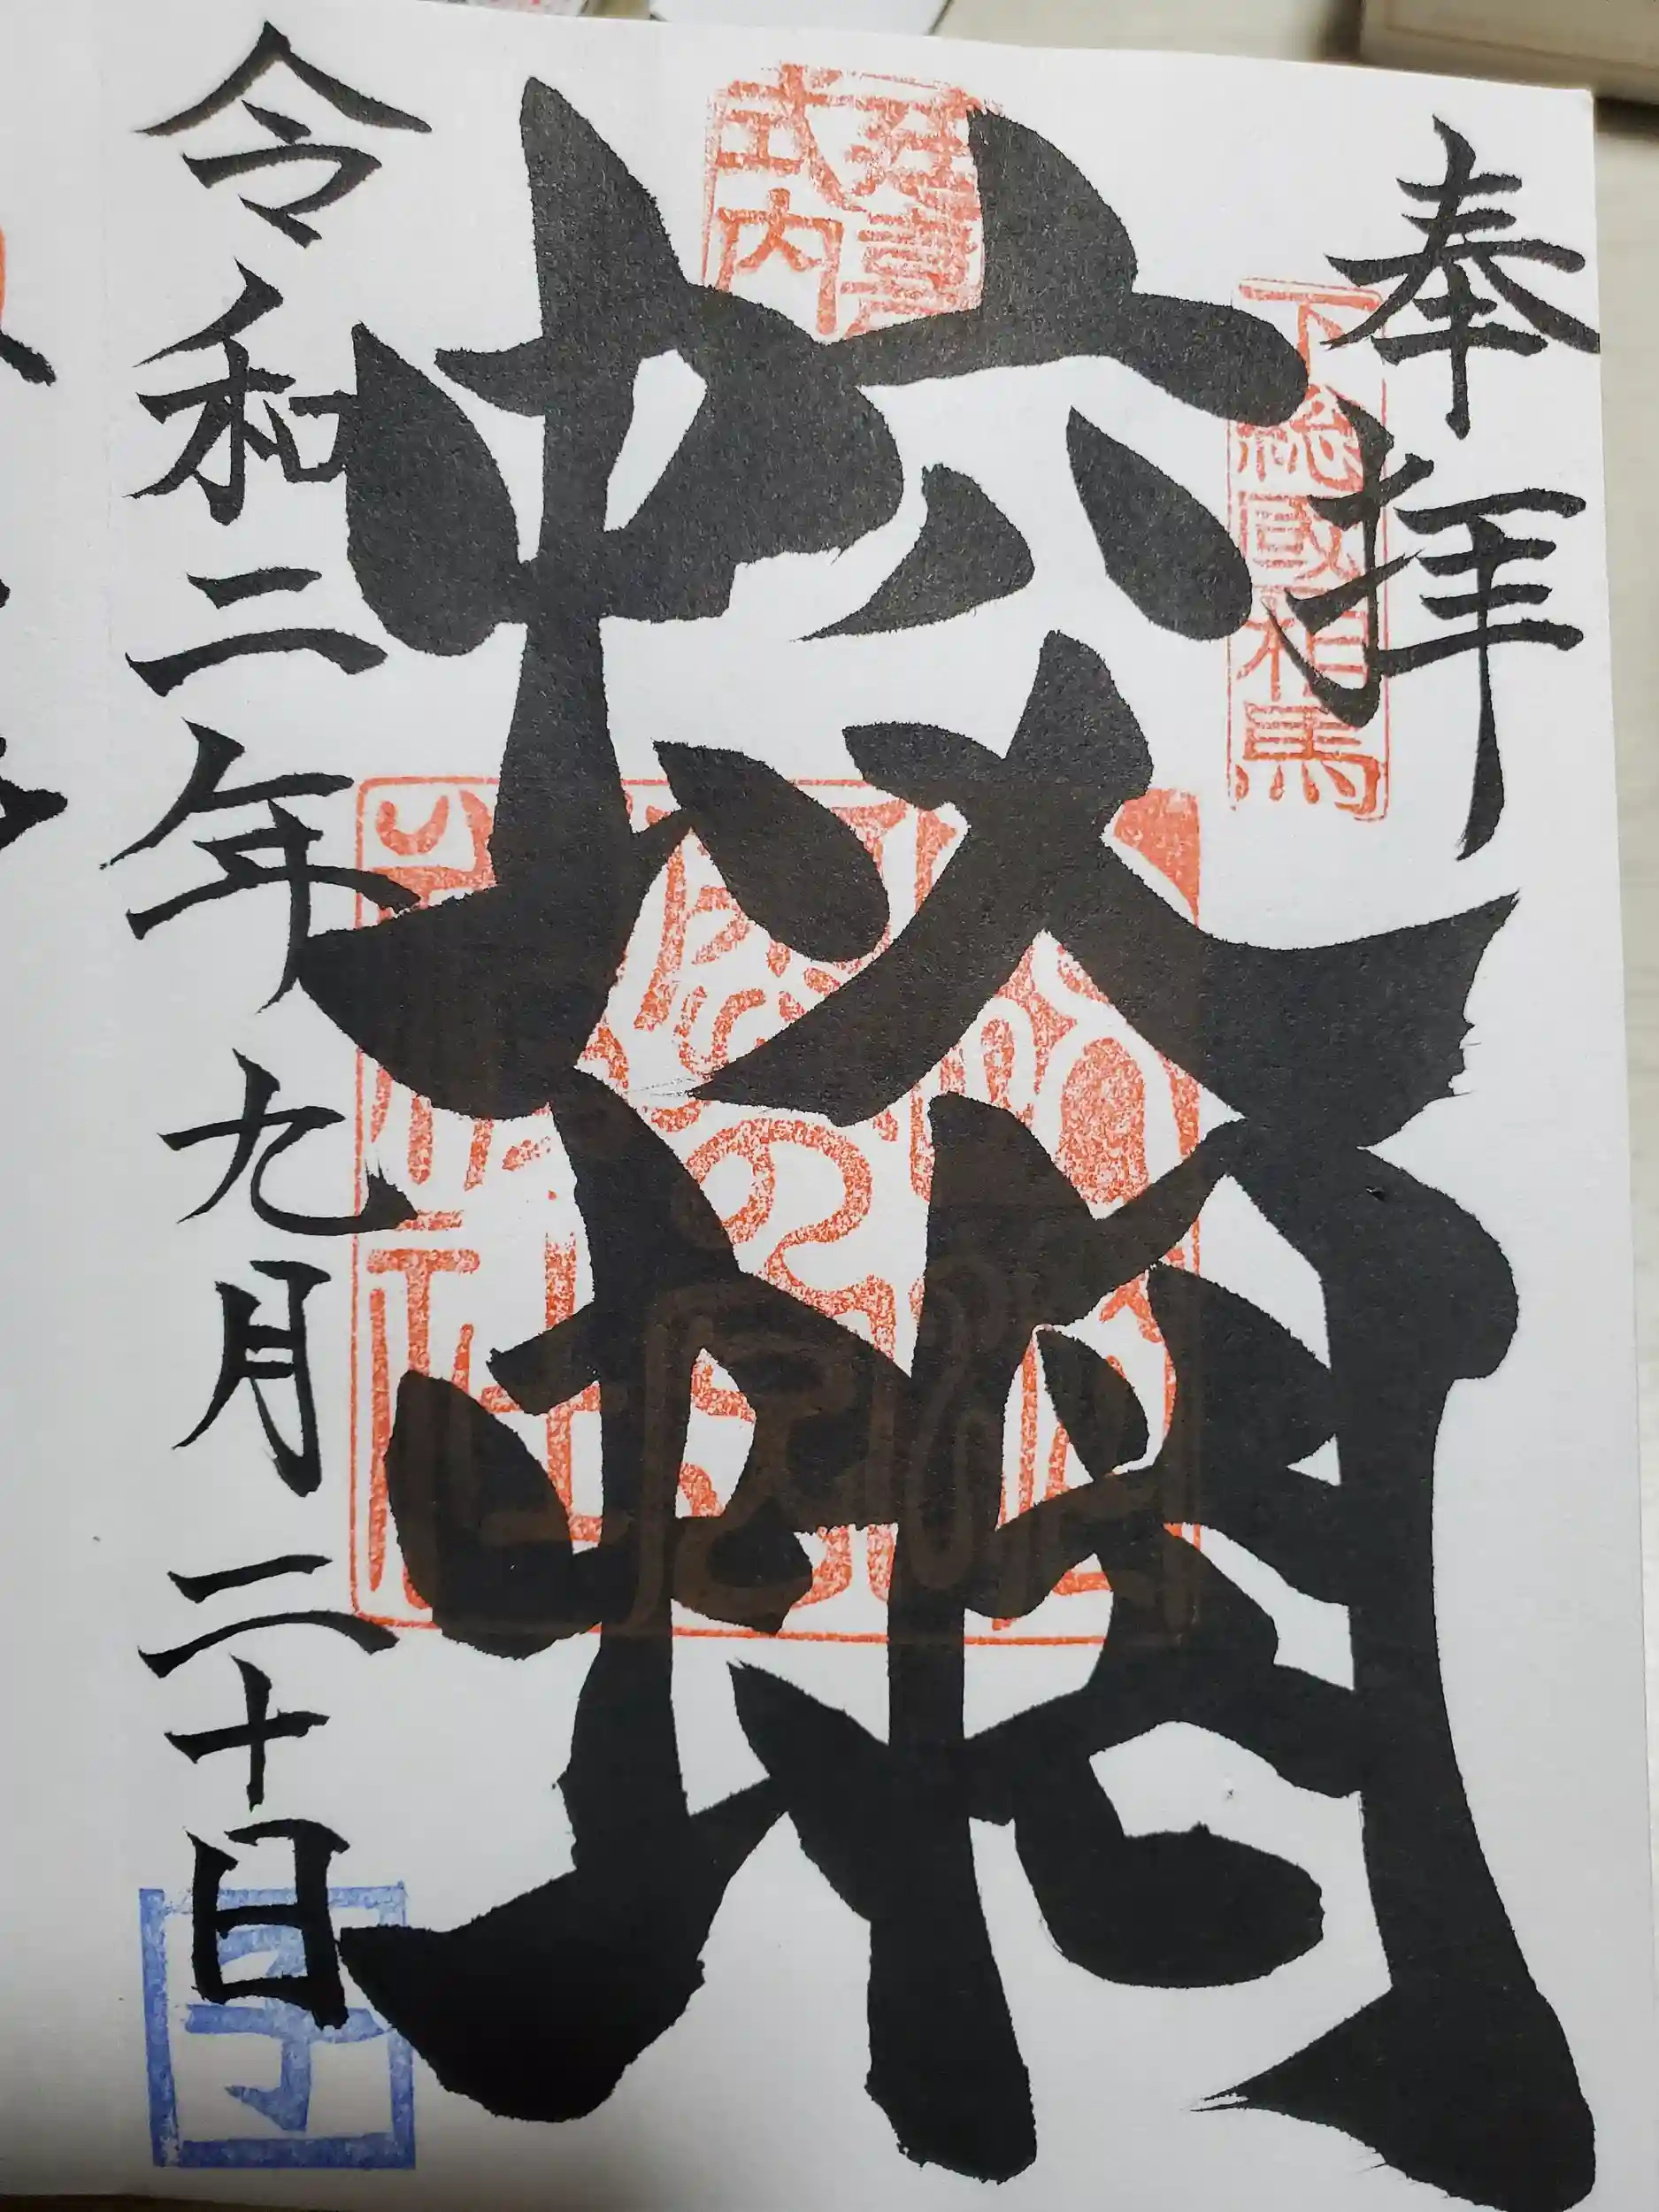 奉拝
下総國相馬
延喜
式内
蛟蝄
令和二年九月二十日